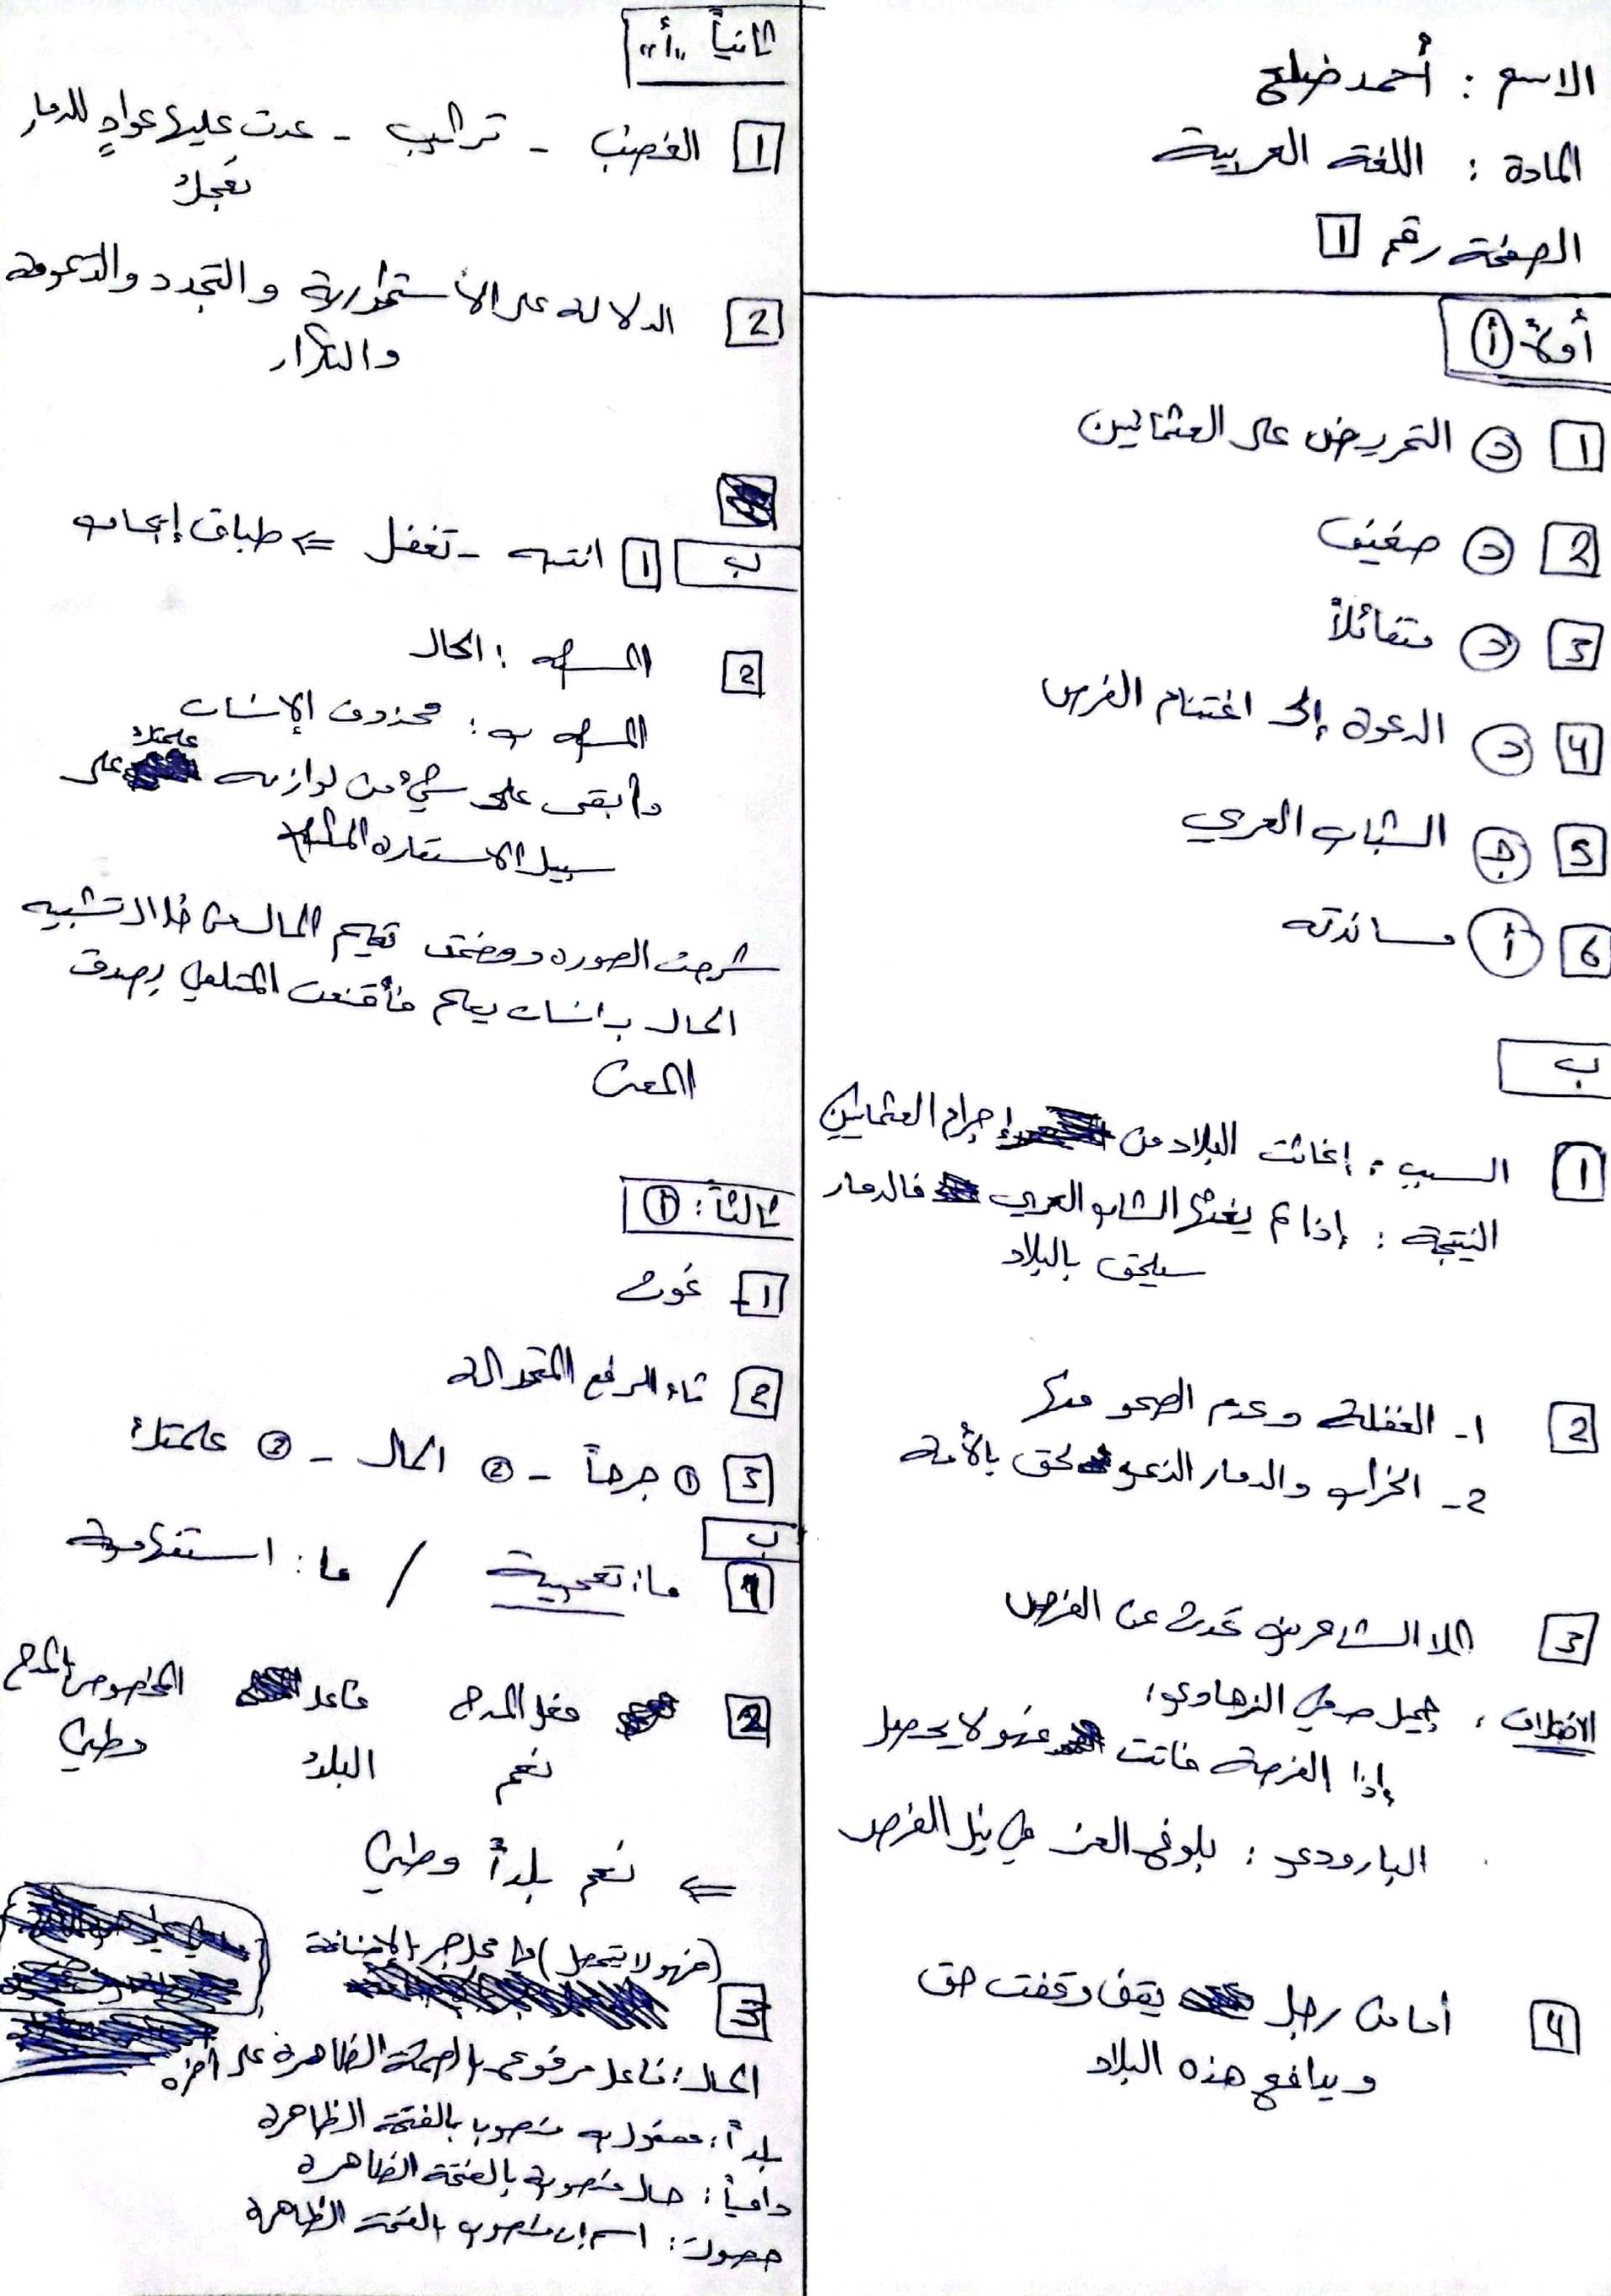 الاسم : أحمد ضلع
المادة : اللغة العربية
الصفحة رقم 1
أولاً أ
1 د التحريض على العثمانيين
2 د ضعيف
3 د متفائلاً
4 د الدعوة إلى اغتنام الفرص
5 ج الشباب العربي
6 أ مساندته
ب
1 السبب : إغاثت البلاد من إجرام العثمانيين
النتيجة : إذا لم يغثها الشاب العربي فالدمار
سيلحق بالبلاد
2 1- الغفلة وعدم الصحو منها
2- الخراب والدمار الذي لحق بالأمة
3 كلا الشاعرين تحدث عن الفرص
الاختلاف : جميل صدقي الزهاوي :
إذا الفرصة فاتت فهو لا يحصل
البارودي : بلوغ العز في نيل الفرص
4 أما من رجل يقف وقفت حق
ويدافع هذه البلاد
ثانياً "أ"
1 الغضب - تراكيب - عدت عليها عوادٍ للدمار
تعجلُ
2 الدلالة على الاستمرارية والتجدد والديمومة
والتكرار
ب 1 انتبه - تغفل ⇐ طباق إيجاب
2 المشبه : الحال
المشبه به : محذوف الإنسان
وأبقى على شيء من لوازمه علمتك على
سبيل الاستعارة المكنية
شرحت الصورة ووضحت تعليم الحال من خلال تشبيه
الحال بإنسان يعلم فأقنعت المتلقي بصدق
المعنى
ثالثاً : أ
1- غوث
2 تاء الرفع المتحركة
3 ① جرحاً - ② الحال - ③ علمتك
ب
1 ما: تعجبية / ما: استفهامية
2 فعل المدح فاعل المخصوص بالمدح
نعم البلدُ وطني
⇐ نعم بلداً وطني
3 (فهو لا يتمهل) في محل جر بالإضافة
الحال : فاعل مرفوع بالضمة الظاهرة على آخره
بلداً : مفعول به منصوب بالفتحة الظاهرة
دامياً : حال منصوبة بالفتحة الظاهرة
حصون : اسم إن منصوب بالفتحة الظاهرة